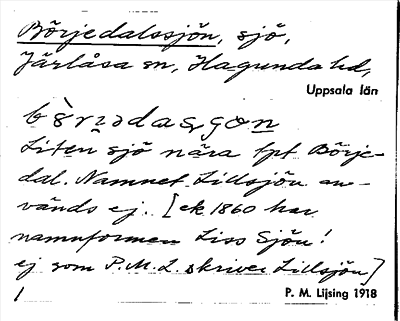 Börjedalssjön, sjö,
Järlåsa sn, Hagunda hd,
Uppsala län
Liten sjö nära tpt Börje-
dal. Namnet Lillsjön an-
vänds ej. [ek 1860 har
namnformen Liss Sjön!
ej som P.M.L. skriver Lillsjön]
/
P. M. Lijsing 1918